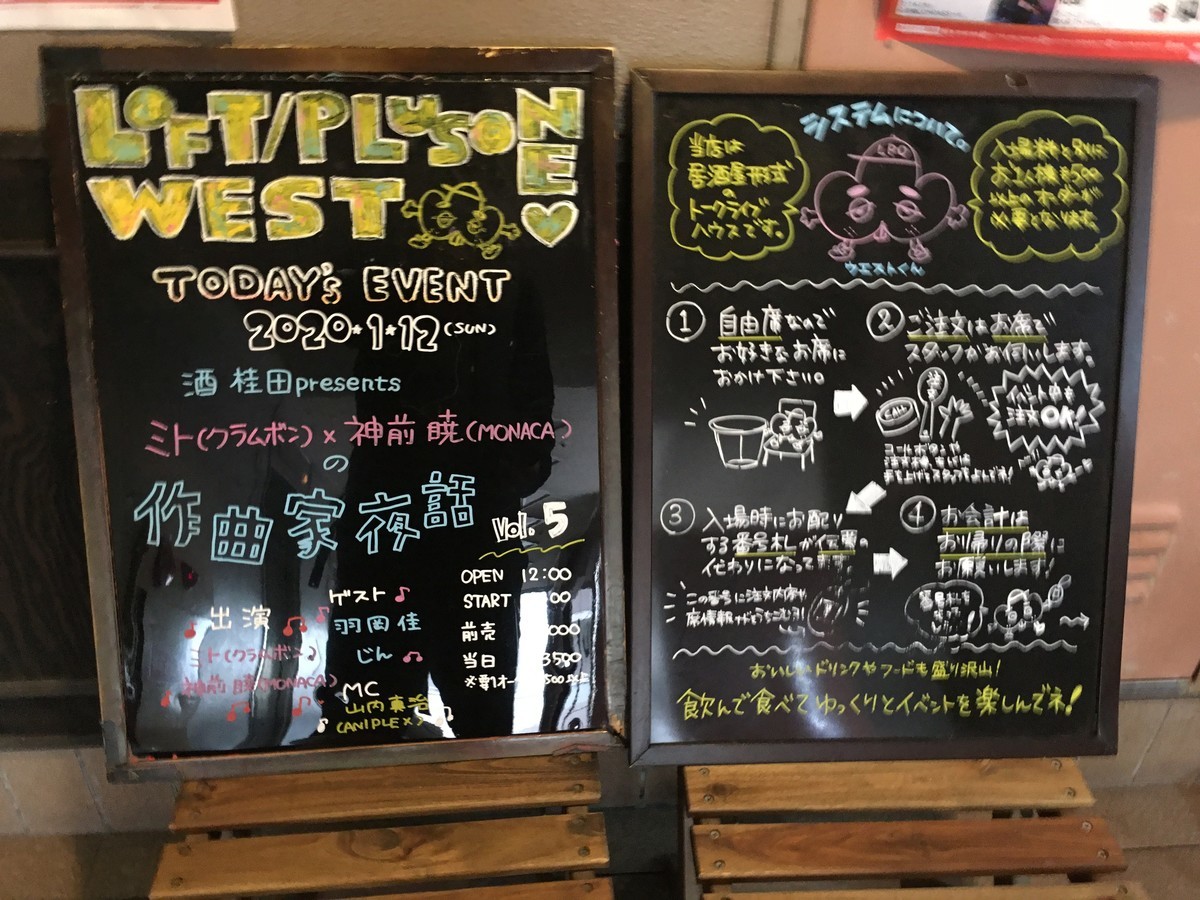 LOFT/PLUSONE
WEST
TODAY's EVENT
2020*1*12 (SUN)
酒 桂田presents
ミト(クラムボン) x 神前 暁(MONACA)
の
作曲家夜話
Vol.5
OPEN 12:00
START 00
前売 000
当日 3500
出演
ミト(クラムボン)
神前 暁(MONACA)
ゲスト♪
羽岡 佳
じん
MC
山内真治
(ANIPLEX)
システムについて。
当店は
居酒屋形式
の
トークライブ
ハウスです。
LPO
入場料と別に
お1人様¥500
以上のオーダーが
必要となります。
ウエストくん
① 自由席なので
お好きなお席に
おかけ下さい。
② ご注文はお席で
スタッフがお伺いします。
CALL
イベント中も
注文OK!
コールボタンや
手を上げてスタッフをよんでネ!
③ 入場時にお配り
する番号札が伝票の
代わりになってます。
この番号に注文内容や
席情報が
④ お会計は
お帰りの際に
お願いします!
番号札を
おいしいドリンクやフードも盛り沢山!
飲んで食べてゆっくりとイベントを楽しんでネ!